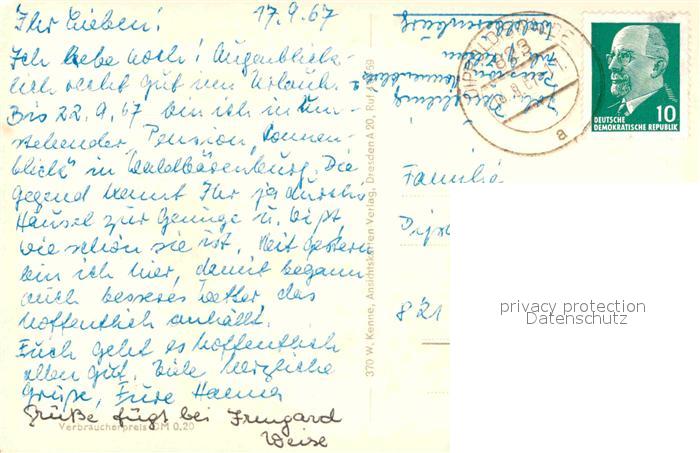 Ihr Lieben! 17.9.67
Ich lebe noch! Augenblick-
lich recht gut im Urlaub.
Bis 22.9.67 bin ich in um-
stehender "Pension Sonnen-
blick" in Waldbärenburg. Die
Gegend kennt Ihr ja durch
Häusel zur Genüge u. wißt,
wie schön sie ist. Seit gestern
bin ich hier, damit begann
auch besseres Wetter das
hoffentlich anhält.
Euch geht es hoffentlich
allen gut. Viele herzliche
Grüße, Eure Hanna
Grüße fügt bei Irmgard
Weise
Verbraucherpreis DM 0,20
370 W. Kenne, Ansichtskarten Verlag, Dresden A 20, Ruf
Pension
Sonnenblick
Waldbärenburg
DIPPOLDISWALDE
823
a
10
DEUTSCHE
DEMOKRATISCHE REPUBLIK
Familie
821
privacy protection
Datenschutz